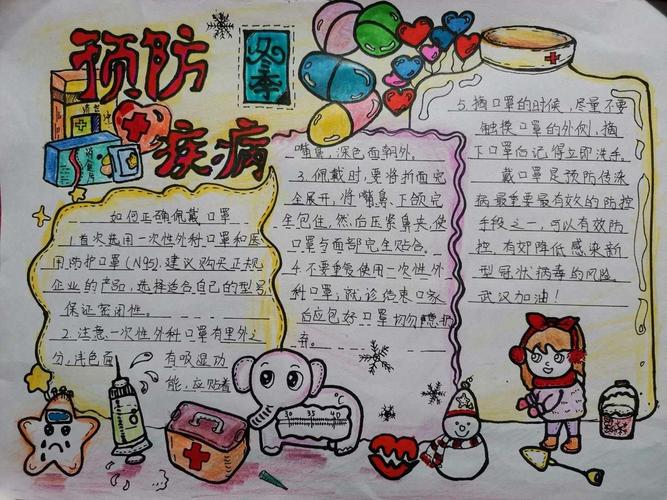 预防
冬季
疾病
如何正确佩戴口罩
1.首次选用一次性外科口罩和医
用防护口罩(N95),建议购买正规
企业的产品,选择适合自己的型号,
保证密闭性。
2.注意一次性外科口罩有里外之
分,浅色面 有吸湿功
能,应贴着
嘴鼻,深色面朝外。
3.佩戴时,要将折面完
全展开,将嘴鼻、下颌完
全包住,然后压紧鼻夹,使
口罩与面部完全贴合。
4.不要重复使用一次性外
科口罩,就诊结束回家
后应包好口罩切勿随
弃。
5.摘口罩的时候,尽量不要
触摸口罩的外侧,摘
下口罩后记得立即洗手。
戴口罩是预防传染
病最重要最有效的防控
手段之一,可以有效防
控,有效降低感染新
型冠状病毒的风险。
武汉加油!
30 35 40 °C